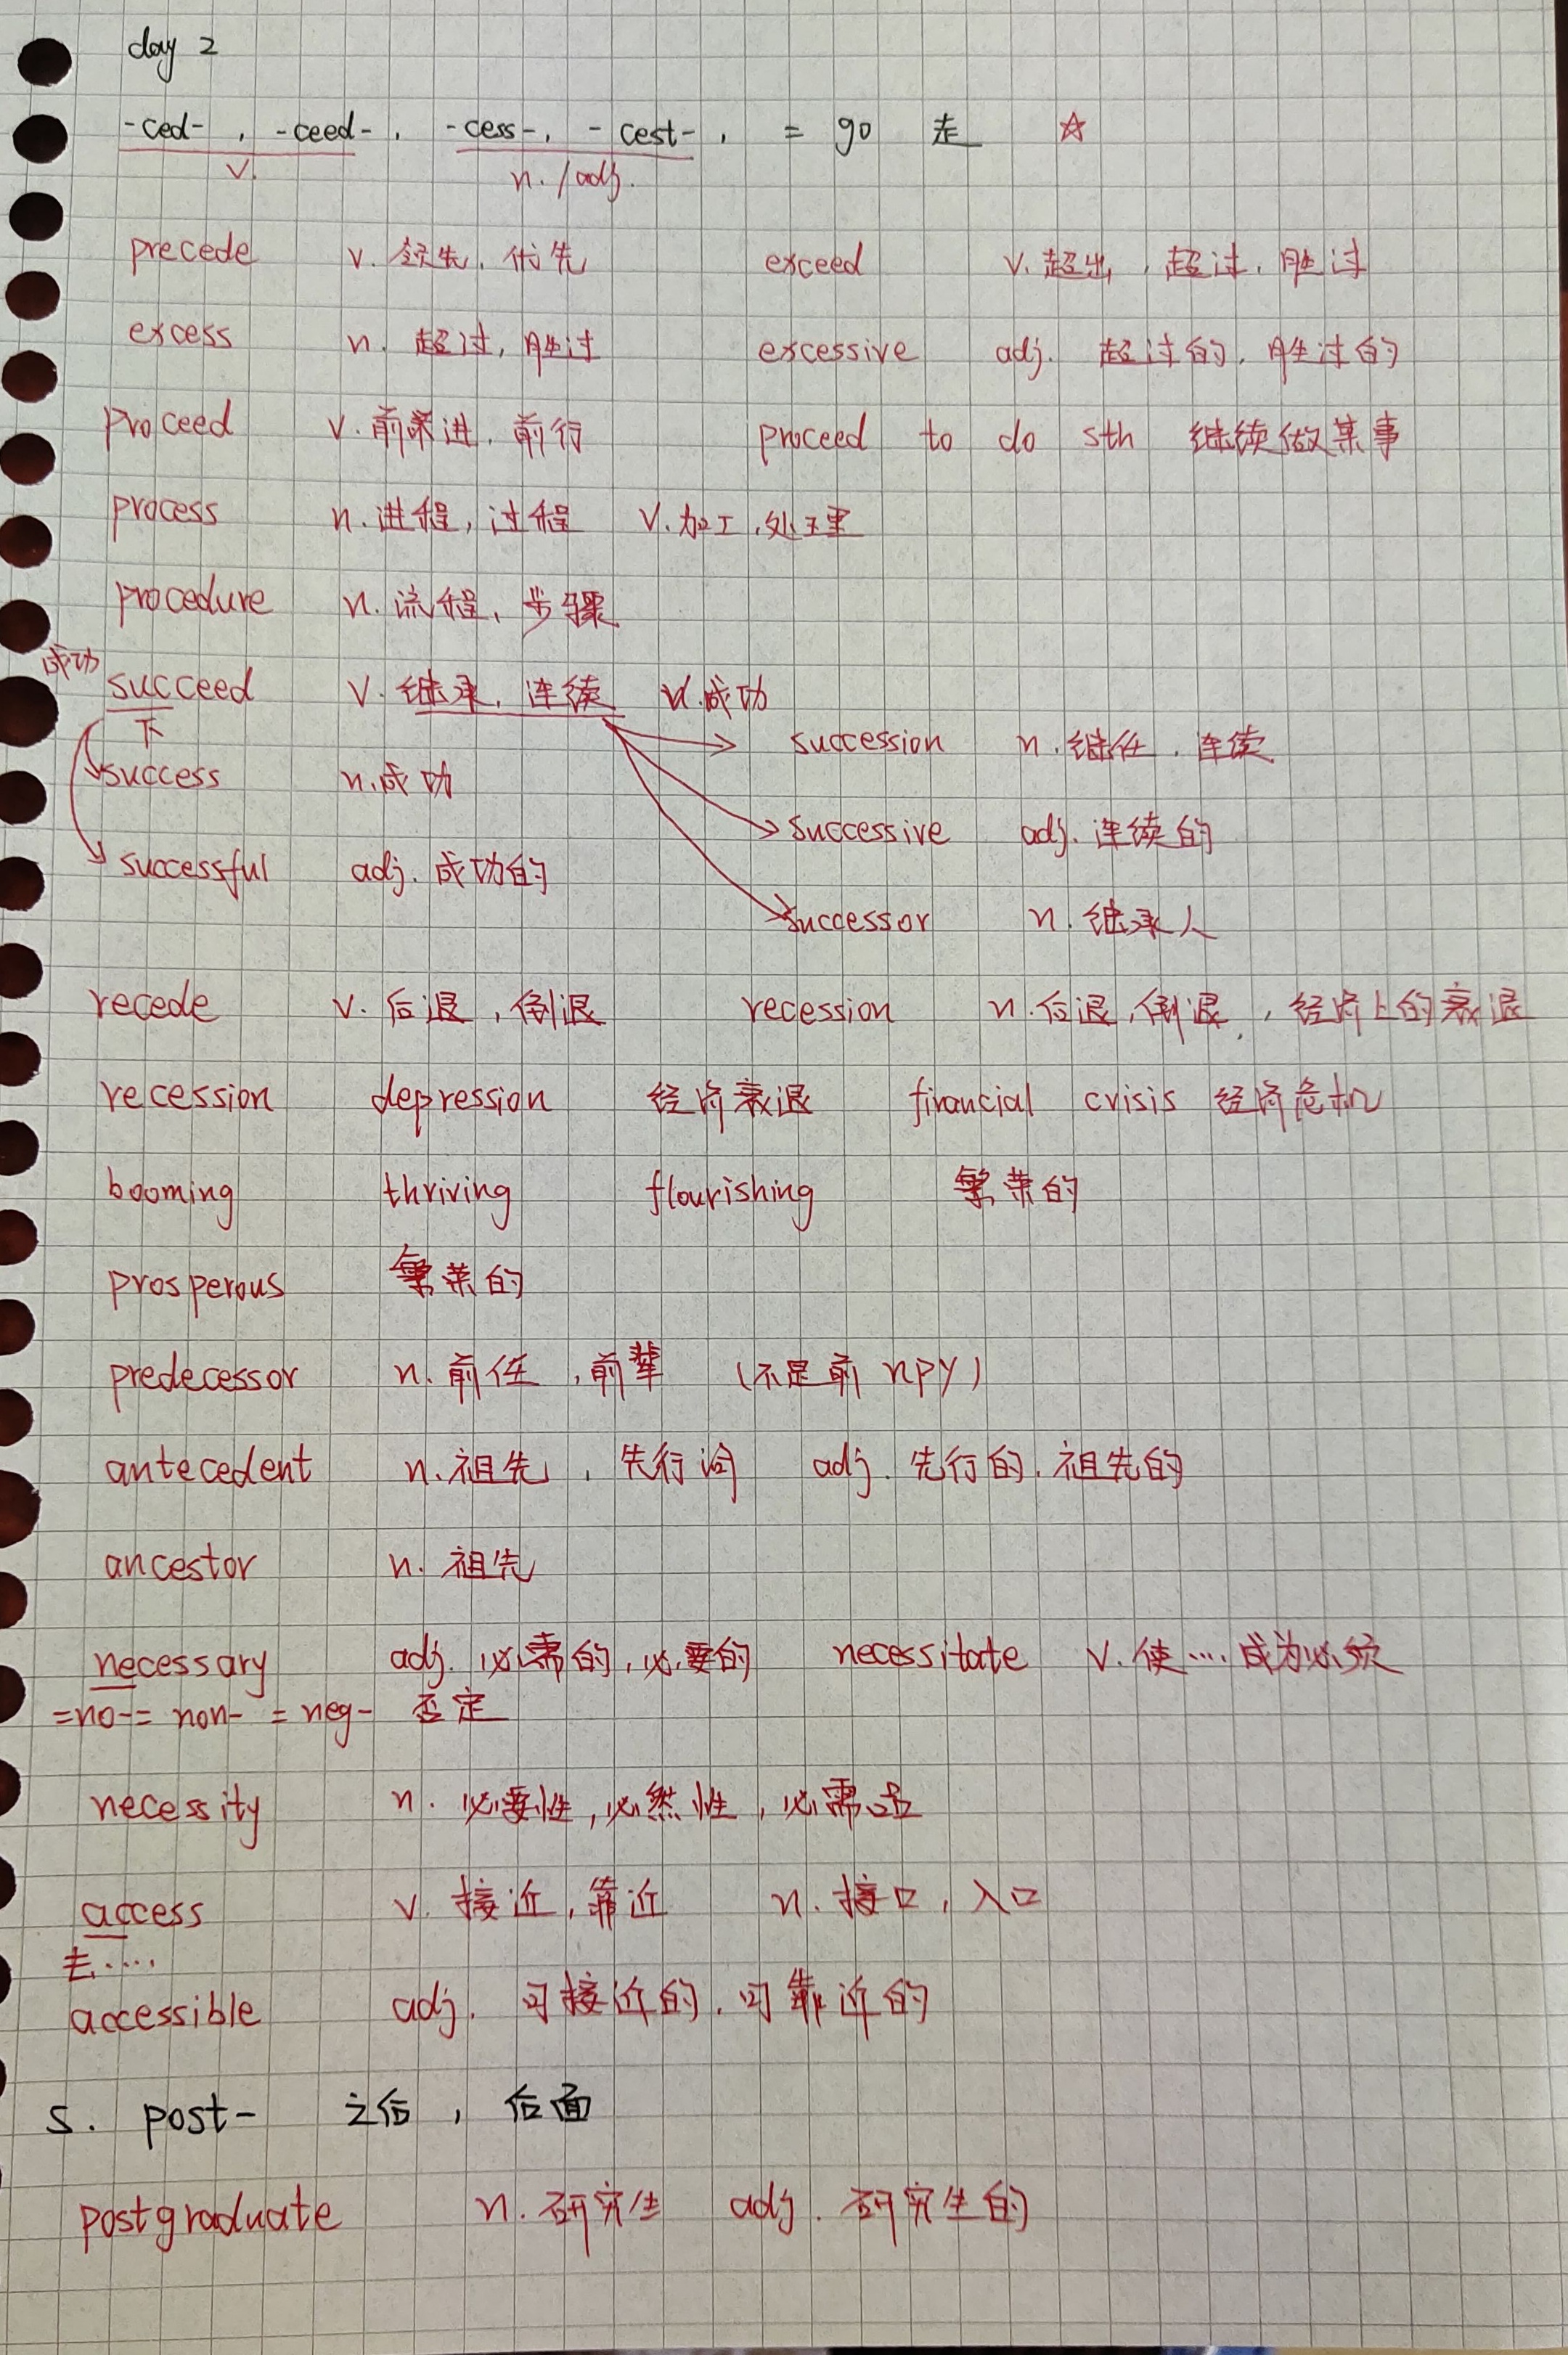 day 2
-ced- , -ceed- , -cess- , -cest- , = go 走 ☆
v. n./adj.
precede v. 领先, 优先 exceed v. 超出, 超过, 胜过
excess n. 超过, 胜过 excessive adj. 超过的, 胜过的
proceed v. 前进, 前行 proceed to do sth 继续做某事
process n. 进程, 过程 v. 加工, 处理
procedure n. 流程, 步骤
成功
succeed v. 继承, 连续 v. 成功
下
succession n. 继任, 连续
success n. 成功
successive adj. 连续的
successful adj. 成功的
successor n. 继承人
recede v. 后退, 倒退 recession n. 后退, 倒退, 经济上的衰退
recession depression 经济衰退 financial crisis 经济危机
booming thriving flourishing 繁荣的
prosperous 繁荣的
predecessor n. 前任, 前辈 (不是前npy)
antecedent n. 祖先, 先行词 adj. 先行的, 祖先的
ancestor n. 祖先
necessary adj. 必需的, 必要的 necessitate v. 使…成为必须
=no-= non- = neg- 否定
necessity n. 必要性, 必然性, 必需品
access v. 接近, 靠近 n. 接口, 入口
去……
accessible adj. 可接近的, 可靠近的
5. post- 之后, 后面
postgraduate n. 研究生 adj. 研究生的